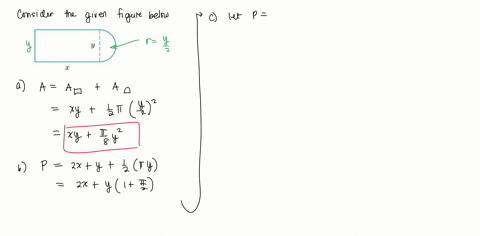 Consider the given figure below
y
y
r = y/2
x
a) A = A▭ + A⌓
= xy + 1/2 π (y/2)²
= xy + π/8 y²
b) P = 2x + y + 1/2 (πy)
= 2x + y (1 + π/2)
c) let P =